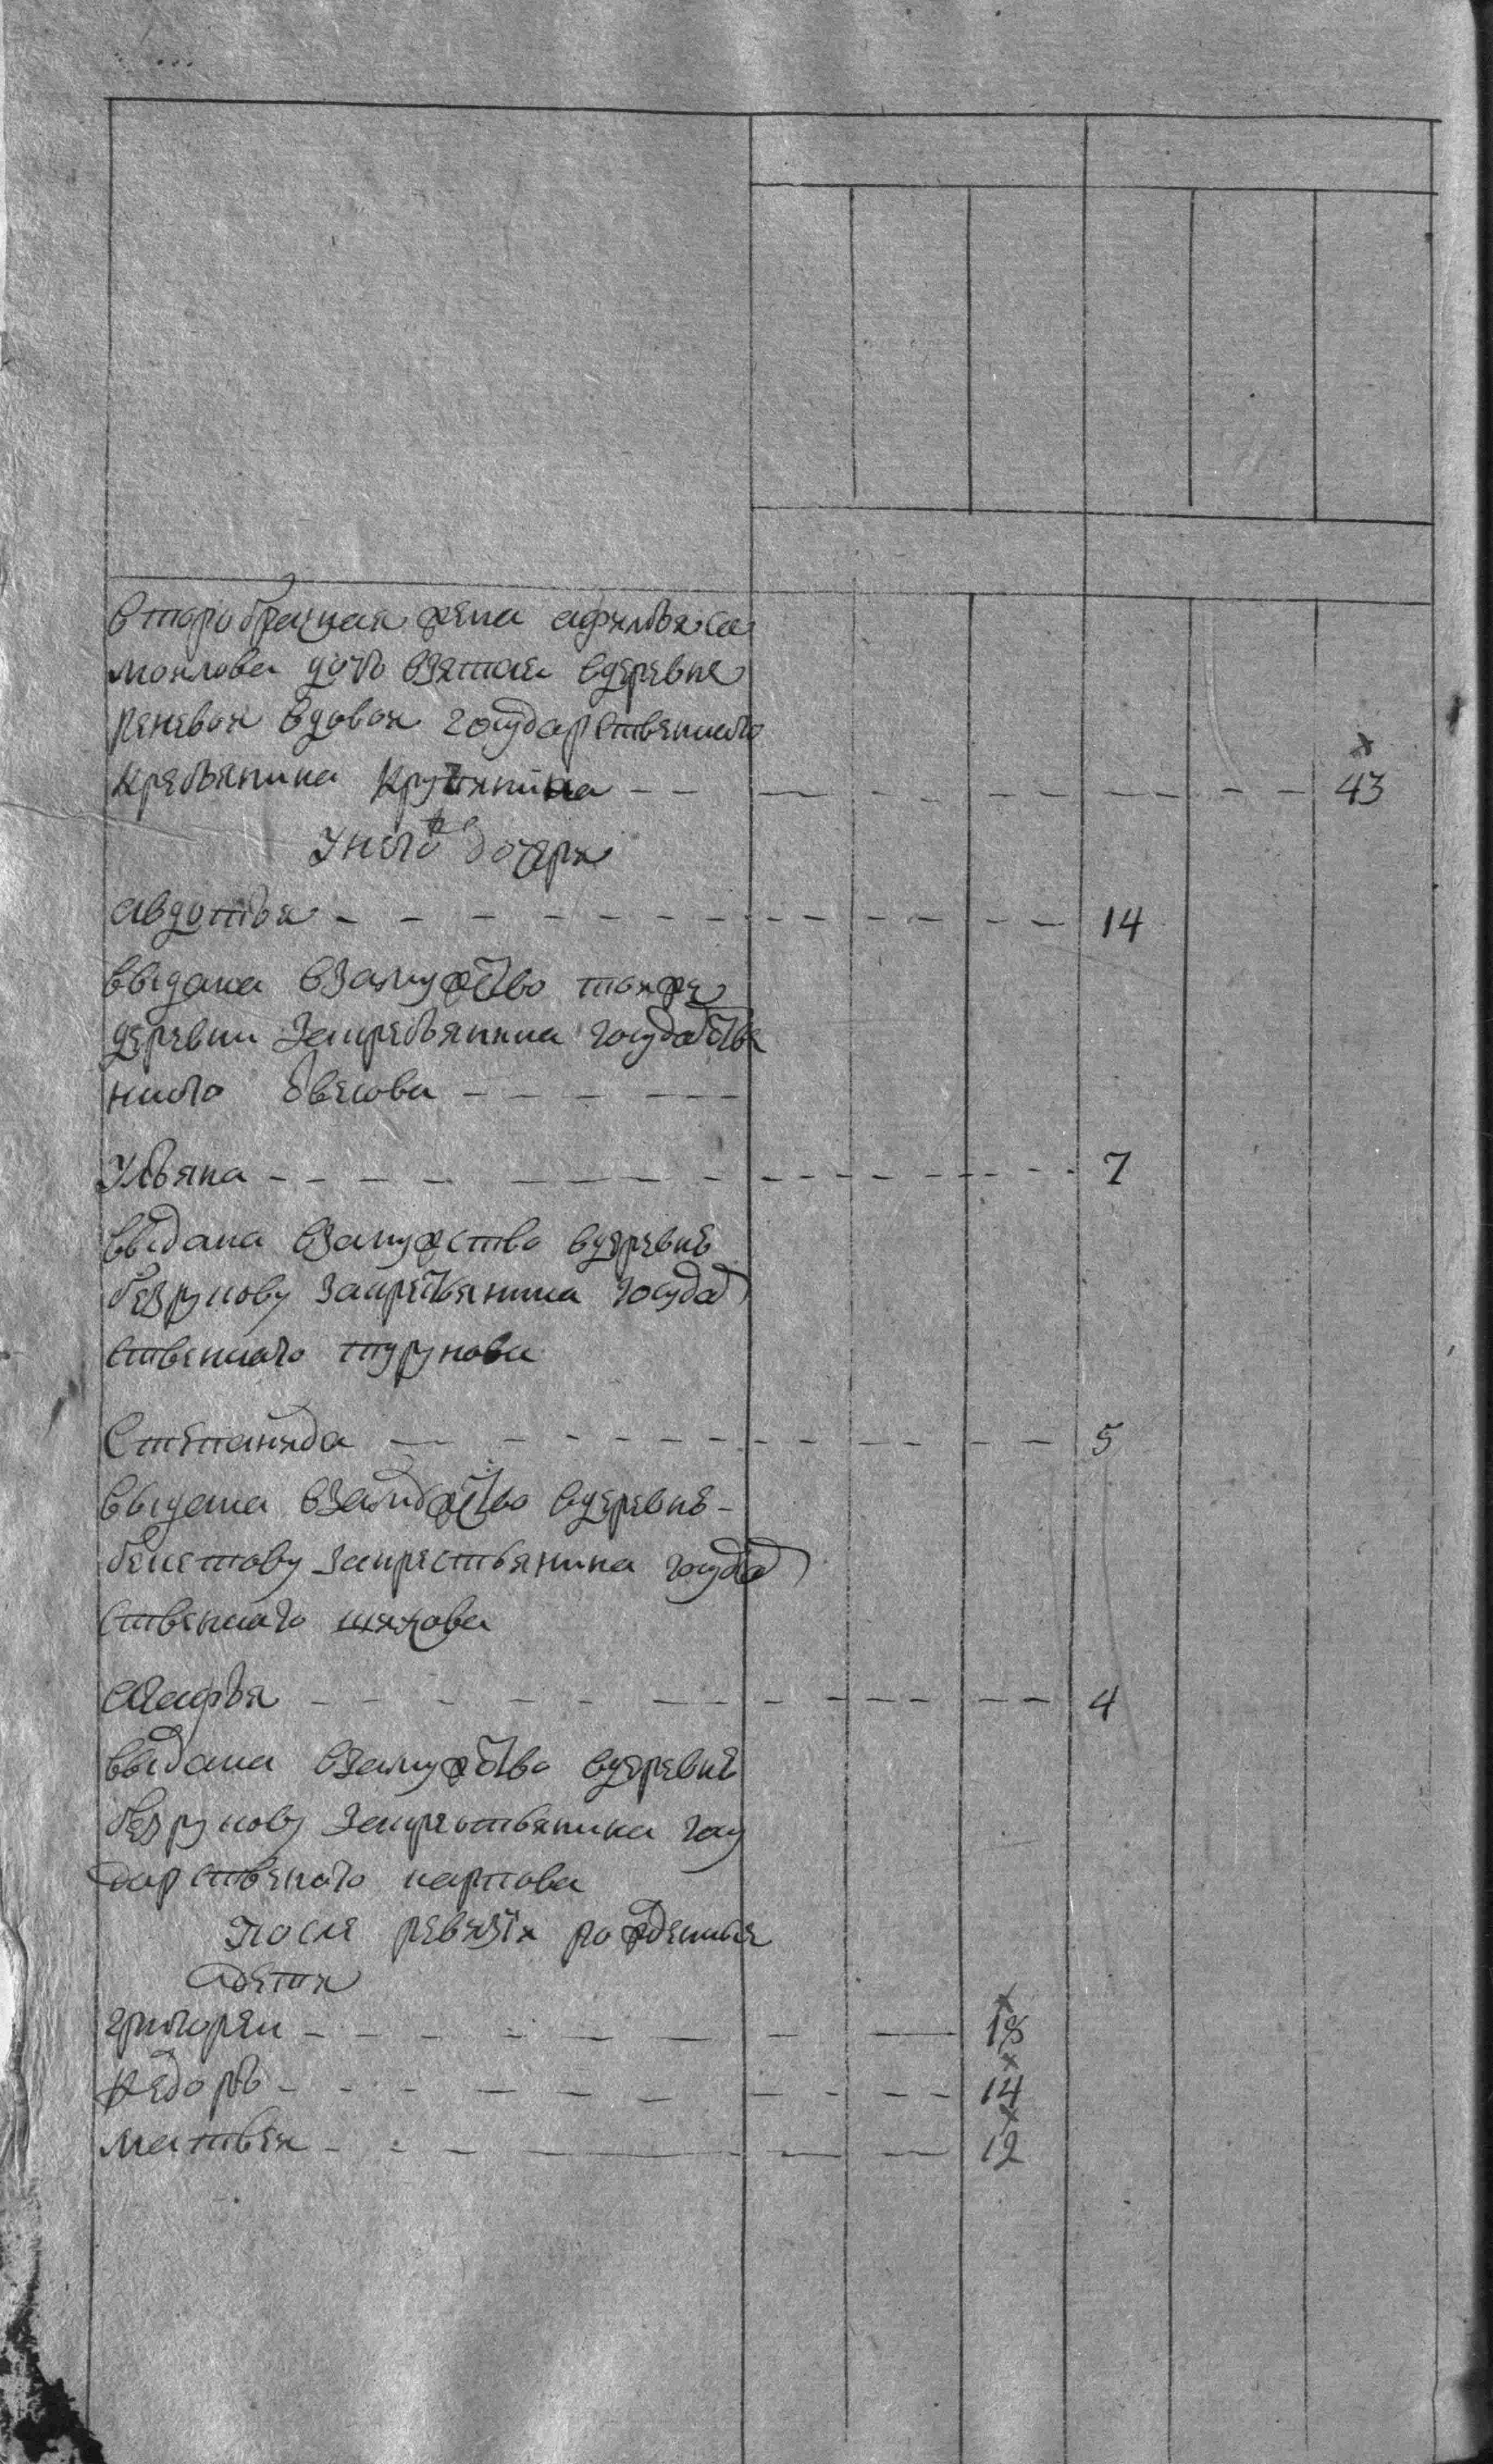 второбрачная жена афимья са
моилова дочь взятая вдеревне
реневои вдовои государственного
кресьянина Кружинина - - 43
У него дочери
авдотья - - - 14
выдана взамужство тояже
деревни закресьянина государстве
нного Овекова - - -
Ульяна - - - 7
выдана взамужство вдеревнѣ
безрукову закрестьянина государ
ственного турукова
Степанида - - - 5
выдана взамужство вдеревнѣ -
бекетову закрестьянина государ
ственного шихова
агафья - - - 4
выдана взамужство вдеревнѣ
безрукову закрестьянина госу
дарственого карпова
после ревизiи рожденные
дети
григореи - - - 18
Федоръ - - - 14
матвеи - - - 12